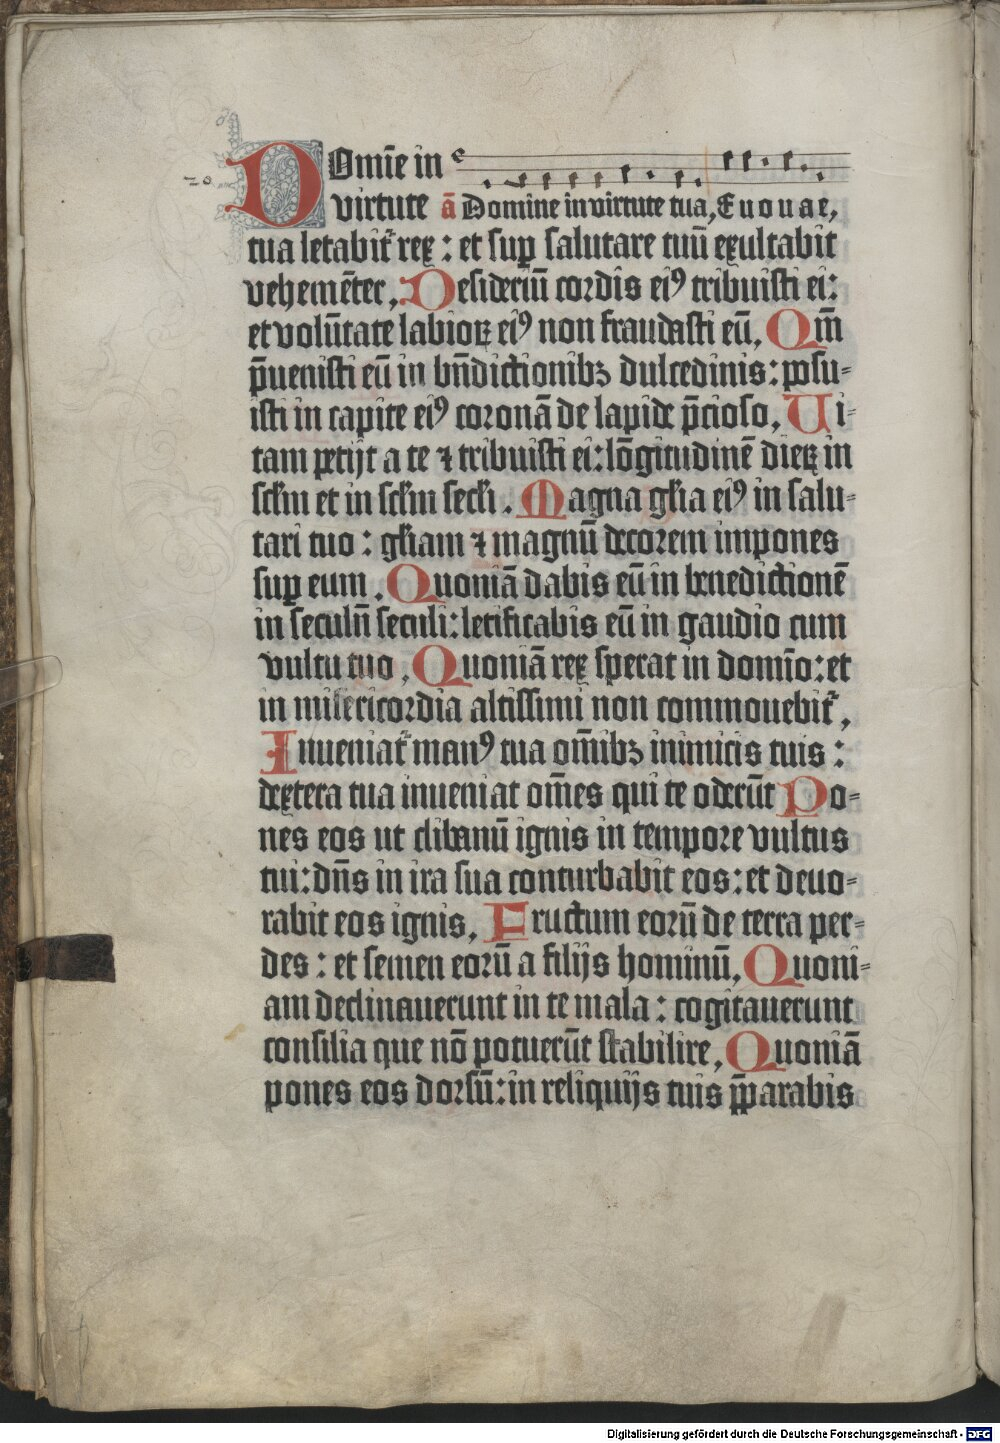 20
Domīe in
virtute ā Domine in virtute tua, Euouae,
tua letabit᷑ rex : et sup̱ salutare tuū exultabit
vehemēter, Desideriū cordis eiꝰ tribuisti ei:
et volūtate labioꝝ eiꝰ non fraudasti eū, Qm̄
p̄uenisti eū in bn̄dictionibꝫ dulcedinis: posu⸗
isti in capite eiꝰ coronā de lapide p̄cioso, Ui⸗
tam petijt a te ⁊ tribuisti ei: lōgitudinē dieꝝ in
scl̄m et in scl̄m secl̄i . Magna gl̄ia eiꝰ in salu⸗
tari tuo : gl̄iam ⁊ magnū decorem impones
sup̱ eum . Quoniā dabis eū in benedictionē
in seculū seculi: letificabis eū in gaudio cum
vultu tuo, Quoniā rex sperat in domīo: et
in misericordia altissimi non commouebit᷑,
Inueniat᷑ manꝰ tua om̄ibꝫ inimicis tuis :
dextera tua inueniat om̄es qui te oderūt Po⸗
nes eos ut clibanū ignis in tempore vultus
tui: dn̄s in ira sua conturbabit eos: et deuo⸗
rabit eos ignis, Fructum eorū de terra per⸗
des : et semen eorū a filijs hominū, Quoni⸗
am declinauerunt in te mala : cogitauerunt
consilia que nō potuerūt stabilire, Quoniā
pones eos dorsū: in reliquijs tuis p̄parabis
Digitalisierung gefördert durch die Deutsche Forschungsgemeinschaft - DFG